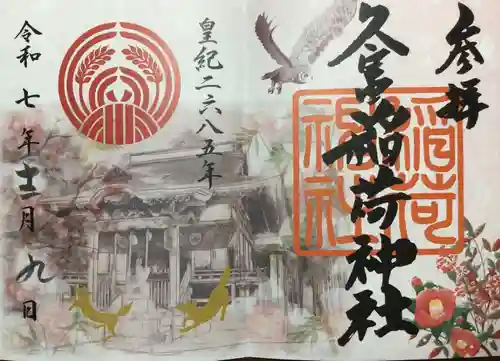 参拝
久富稲荷神社
稲荷
皇紀二六八五年
令和七年十二月九日